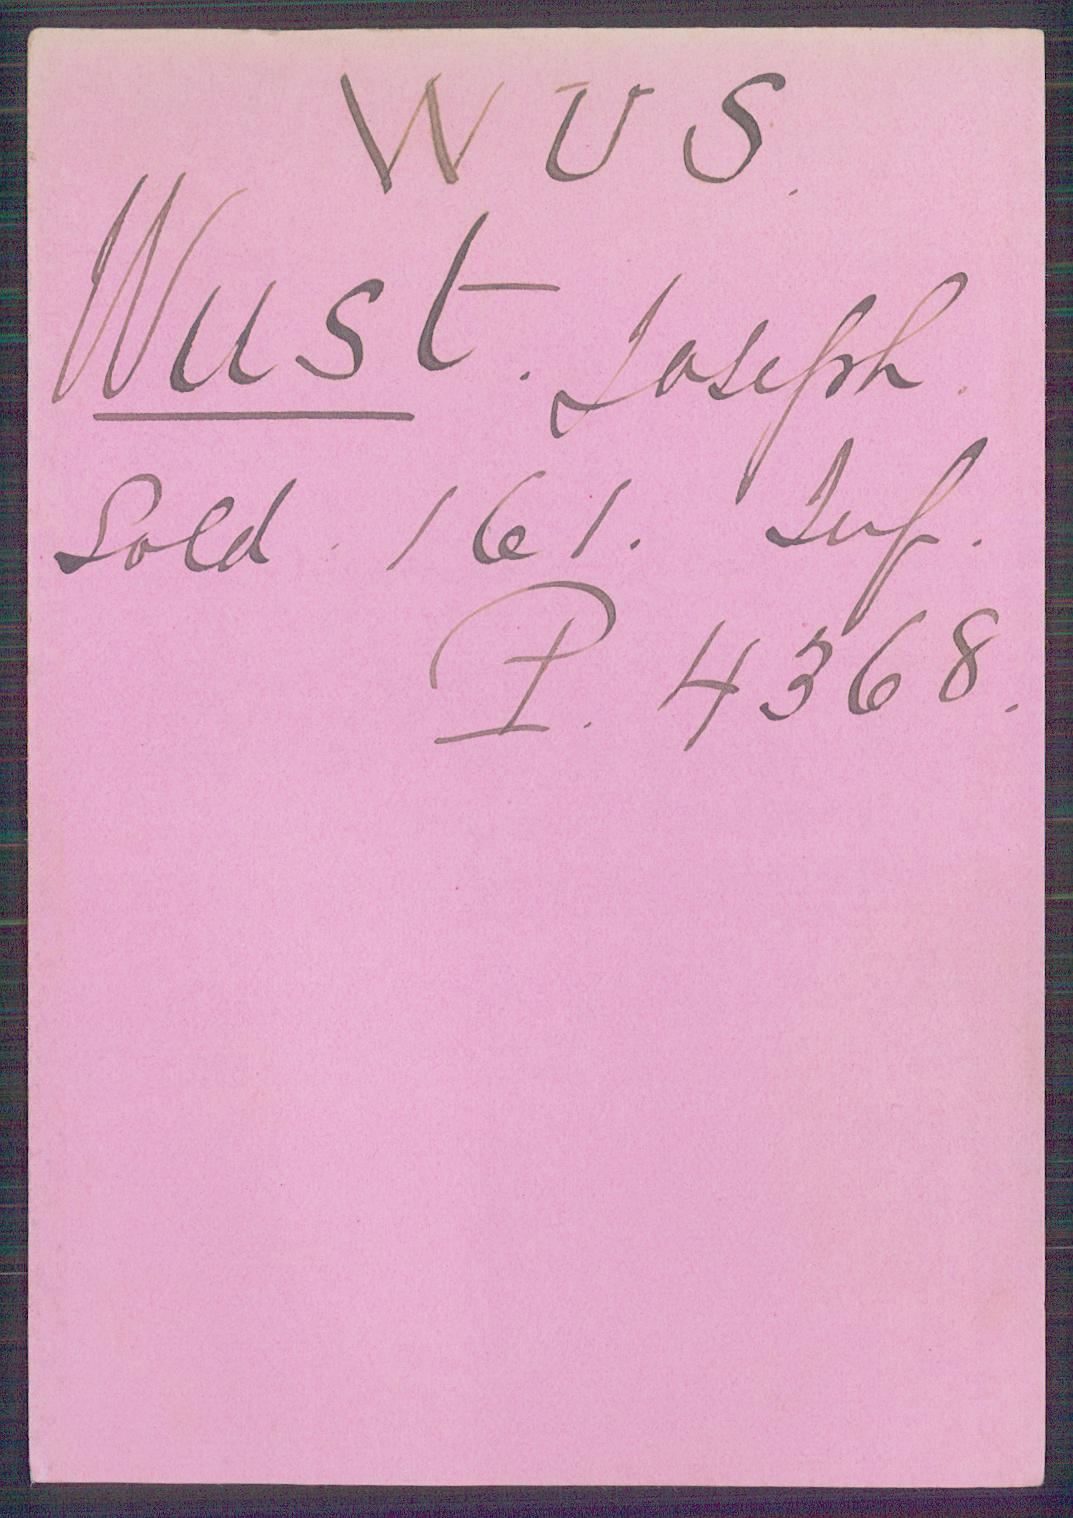 WUS.
Wust. Joseph.
Sold. 161. Inf.
P. 4368.